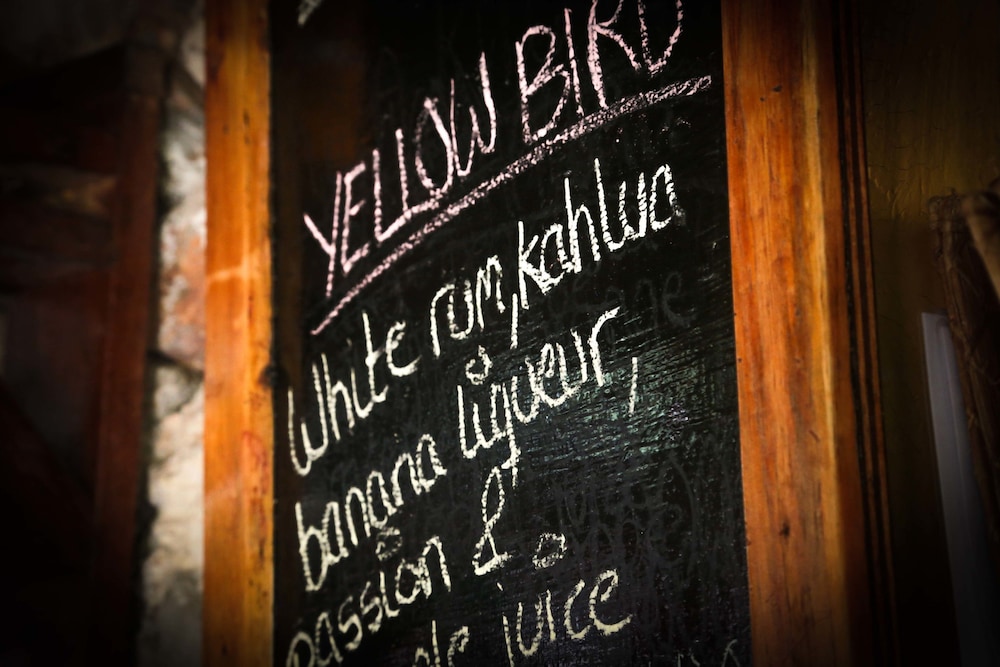 YELLOW BIRD
White rum, kahlua
banana liqueur,
passion &
juice